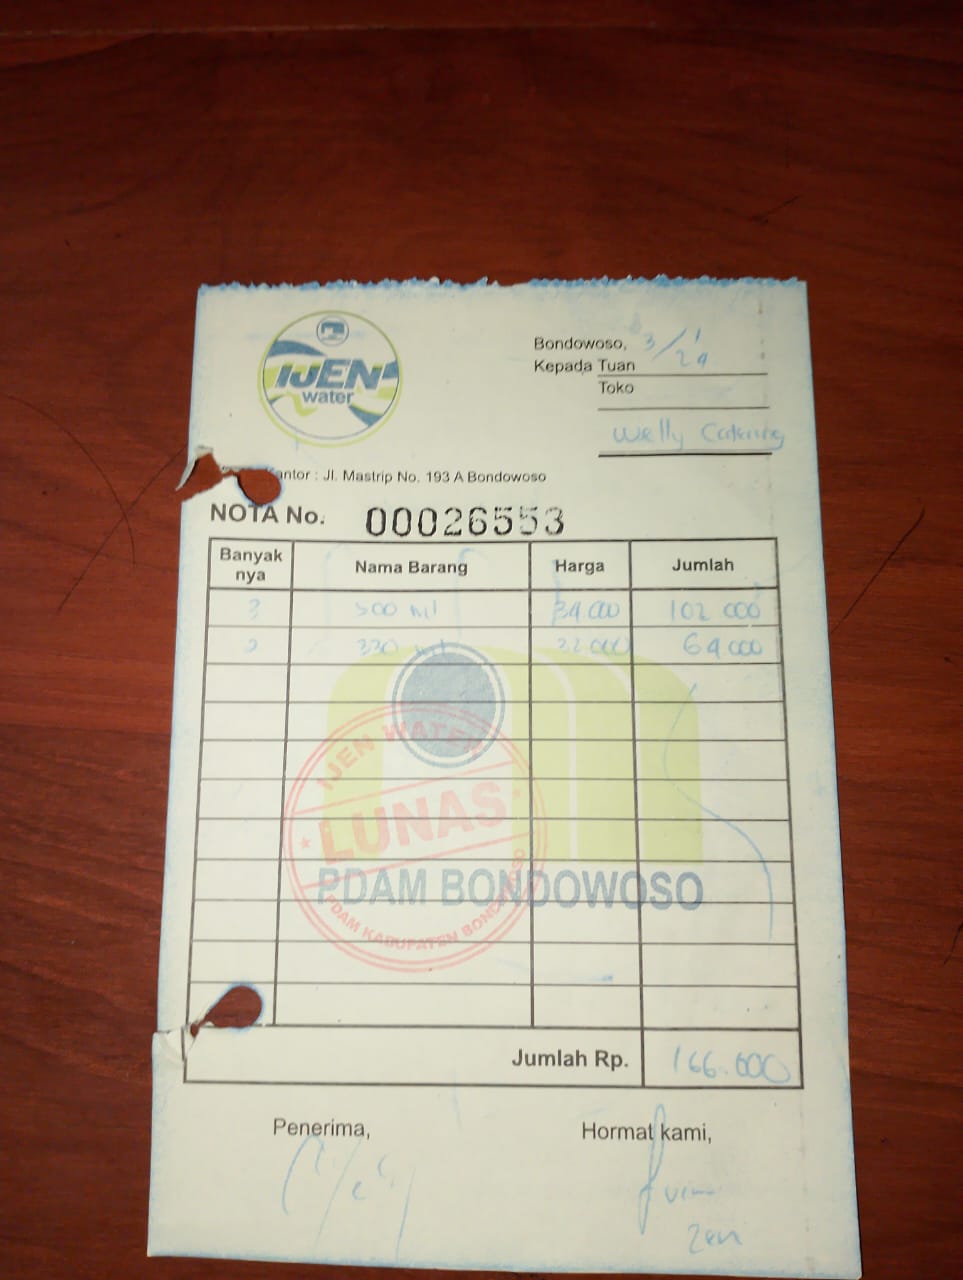 IJEN
water
Bondowoso, 3/1
24
Kepada Tuan
Toko
Welly Catering
antor : Jl. Mastrip No. 193 A Bondowoso
NOTA No. 00026553
Banyak nya Nama Barang Harga Jumlah
3 500 ml 34.000 102.000
2 330 ml 32.000 64.000
IJEN WATER
LUNAS
PDAM BONDOWOSO
PDAM KABUPATEN BONDOWOSO
Jumlah Rp. 166.000
Penerima, Hormat kami,